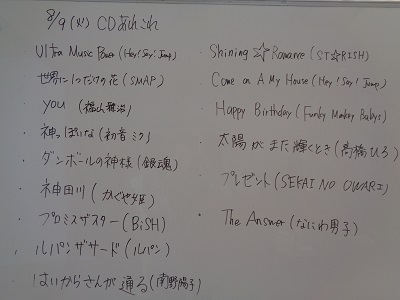 8/9(火) CDあれこれ
・Ultra Music Power (Hey! Say! Jump)
・世界に1つだけの花 (SMAP)
・YOU (福山雅治)
・神っぽいな (初音ミク)
・ダンボールの神様 (銀魂)
・神田川 (かぐや姫)
・プロミスザスター (BiSH)
・ルパンザサード (ルパン)
・はいからさんが通る (南野陽子)
・Shining ☆ Romance (ST☆RISH)
・Come on A My House (Hey! Say! Jump)
・Happy Birthday (Funky Monkey Babys)
・太陽がまた輝くとき (高橋ひろ)
・プレゼント (SEKAI NO OWARI)
・The Answer (なにわ男子)